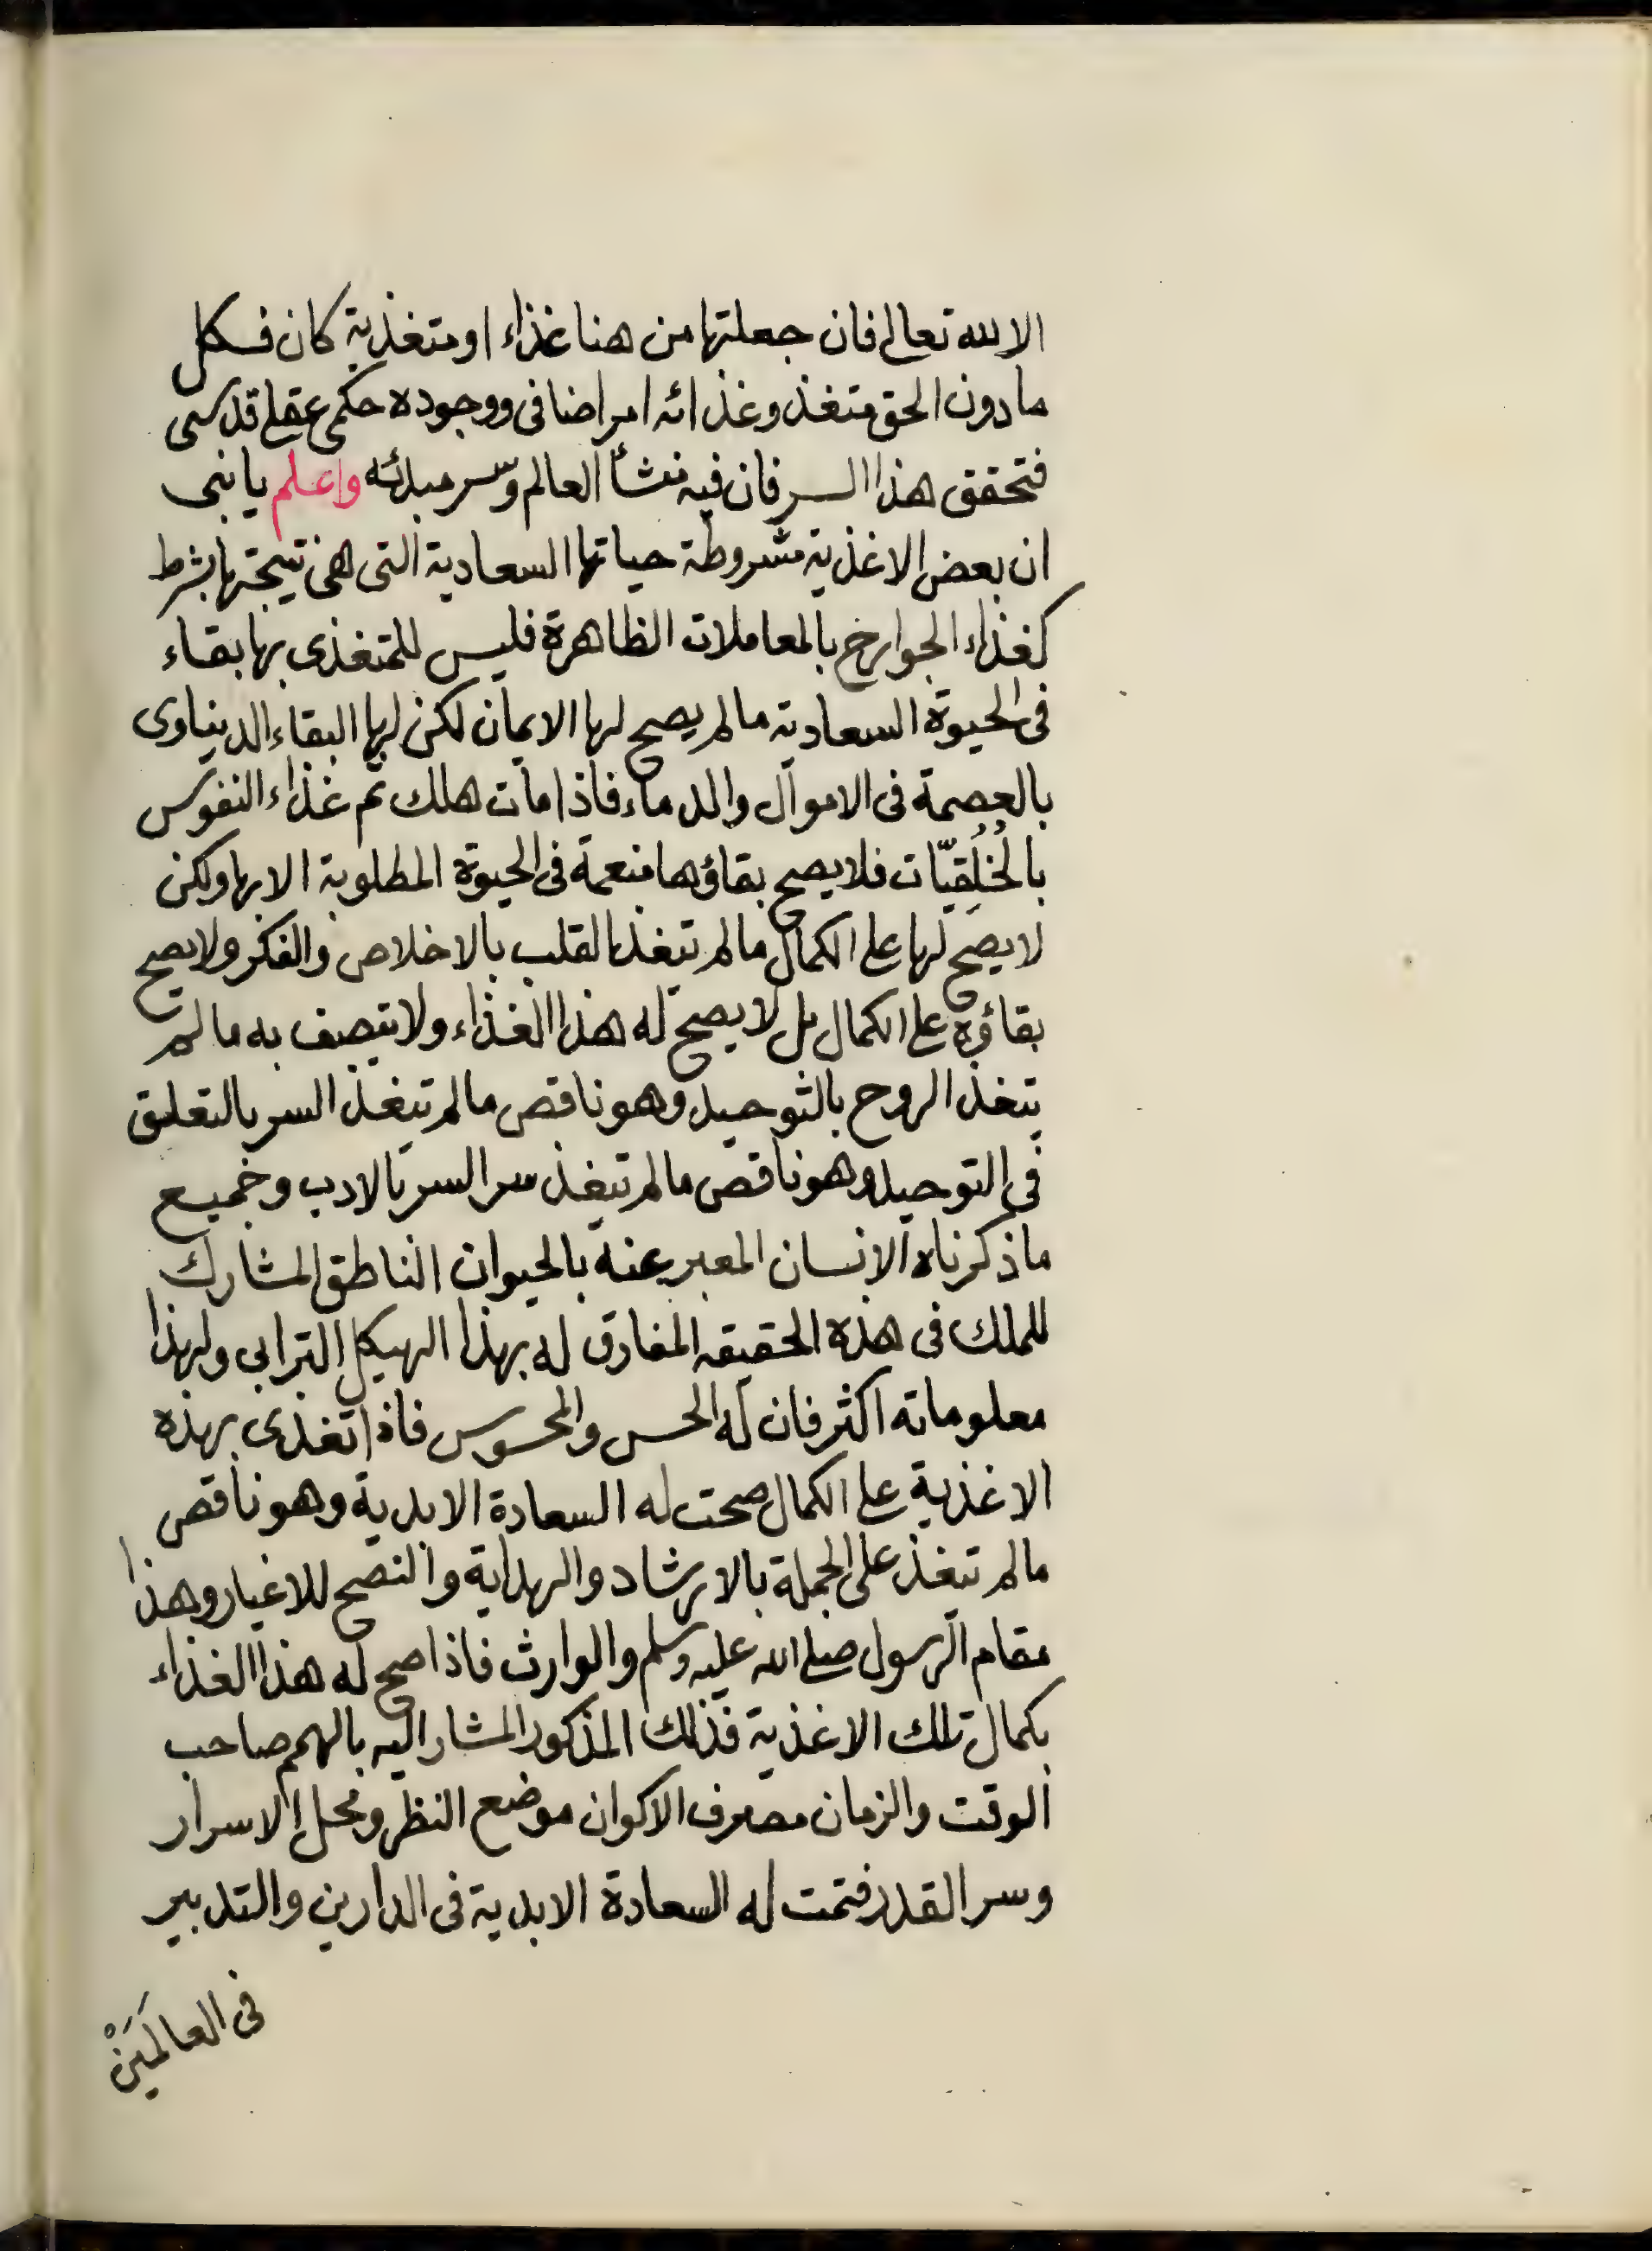 الا لله تعالى فان جعلتها من هنا غذاء او متغذية كان فكل
ما دون الحق متغذ وغذائه امر اضافى ووجوده حكمى عقلى قدسى
فتحقق هذا السر فان فيه منشأ العالم وسر مبدئه واعلم يا بنى
ان بعض الاغذية مشروطة حياتها السعادية التى هى نتيجتها بشرط
كغذاء الجوارح بالمعاملات الظاهرة فليس للمتغذى بها بقاء
فى الحيوة السعادية ما لم يصح لها الايمان لكن لها البقاء الدنياوى
بالعصمة فى الاموال والدماء فاذا مات هلك ثم غذاء النفوس
بالخُلُقِيّات فلا يصح بقاؤها منعمة فى الحيوة المطلوبة الا بها ولكن
لا يصح لها على الكمال ما لم تتغذ القلب بالاخلاص والفكر ولا يصح
بقاؤه على الكمال بل لا يصح له هذا الغذاء ولا يتصف به ما لم
يتغذ الروح بالتوحيد وهو ناقص ما لم تتغذ السر بالتعليق
فى التوحيد وهو ناقص ما لم تتغذ سر السر بالادب وجميع
ما ذكرناه الانسان المعبر عنه بالحيوان الناطق المشارك
للملك فى هذه الحقيقه المفارق له بهذا الهيكل الترابى ولهذا
معلوماته اكثر فان له الحس والمحسوس فاذا تغذى بهذه
الاغذية على الكمال صحت له السعادة الابدية وهو ناقص
ما لم تتغذ على الجملة بالارشاد والهداية والنصح للاغيار وهذا
مقام الرسول صلى الله عليه وسلم والوارث فاذا صح له هذا الغذاء
بكمال تلك الاغذية فذلك المذكور المشار اليه بالهمم صاحب
الوقت والزمان مصرف الاكوان موضع النظر ومحل الاسرار
وسر القدر فتمت له السعادة الابدية فى الدارين والتدبير
فى العالَمَينْ